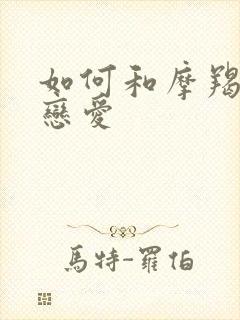 如何和摩羯
戀愛
馬特-羅伯